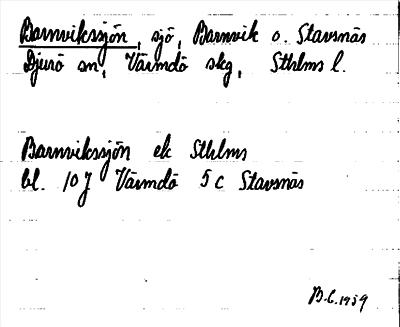 Barnvikssjön, sjö, Barnvik o. Stavsnäs
Djurö sn, Värmdö skg, Sthlms l.
Barnvikssjön ek Sthlms
bl. 10 J Värmdö 5 c Stavsnäs
B.C. 1939